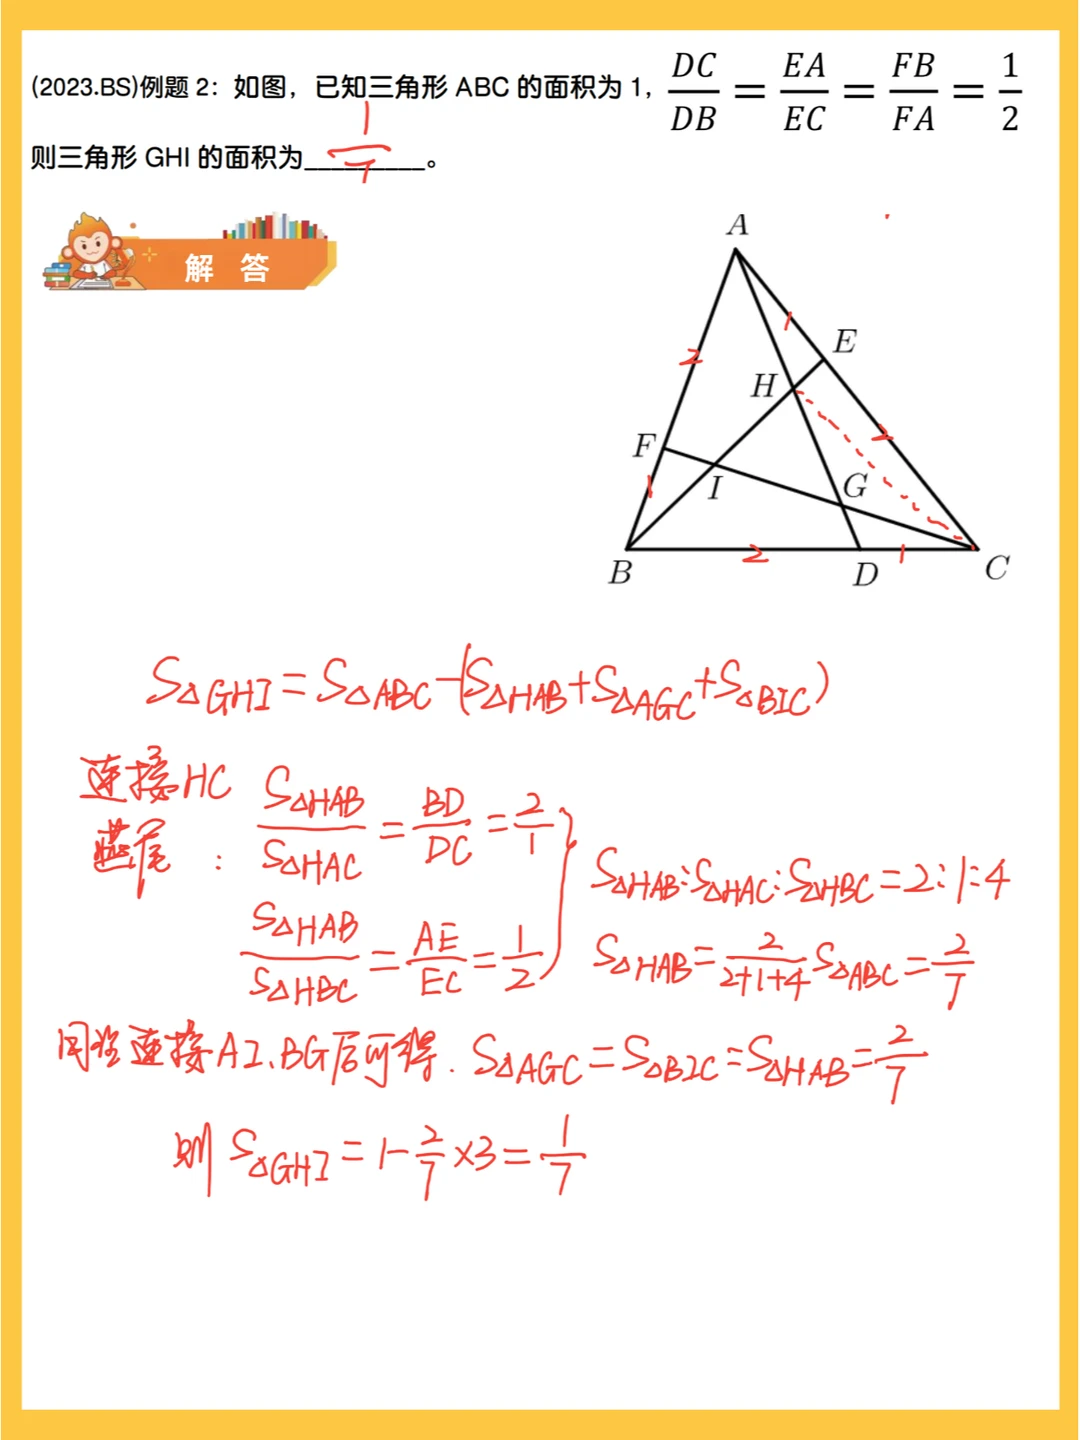 (2023.BS)例题 2：如图，已知三角形 ABC 的面积为 1， DC/DB = EA/EC = FB/FA = 1/2
则三角形 GHI 的面积为 1/7 。
解 答
A
1
E
2
H
2
F
G
1
I
2
1
B
D
C
S△GHI = S△ABC-(S△HAB+S△AGC+S△BIC)
连接HC
燕尾：
S△HAB/S△HAC = BD/DC = 2/1
S△HAB/S△HBC = AE/EC = 1/2
S△HAB:S△HAC:S△HBC=2:1:4
S△HAB = 2/(2+1+4) S△ABC = 2/7
同理连接AI、BG后可得. S△AGC=S△BIC=S△HAB=2/7
则 S△GHI = 1-2/7×3 = 1/7